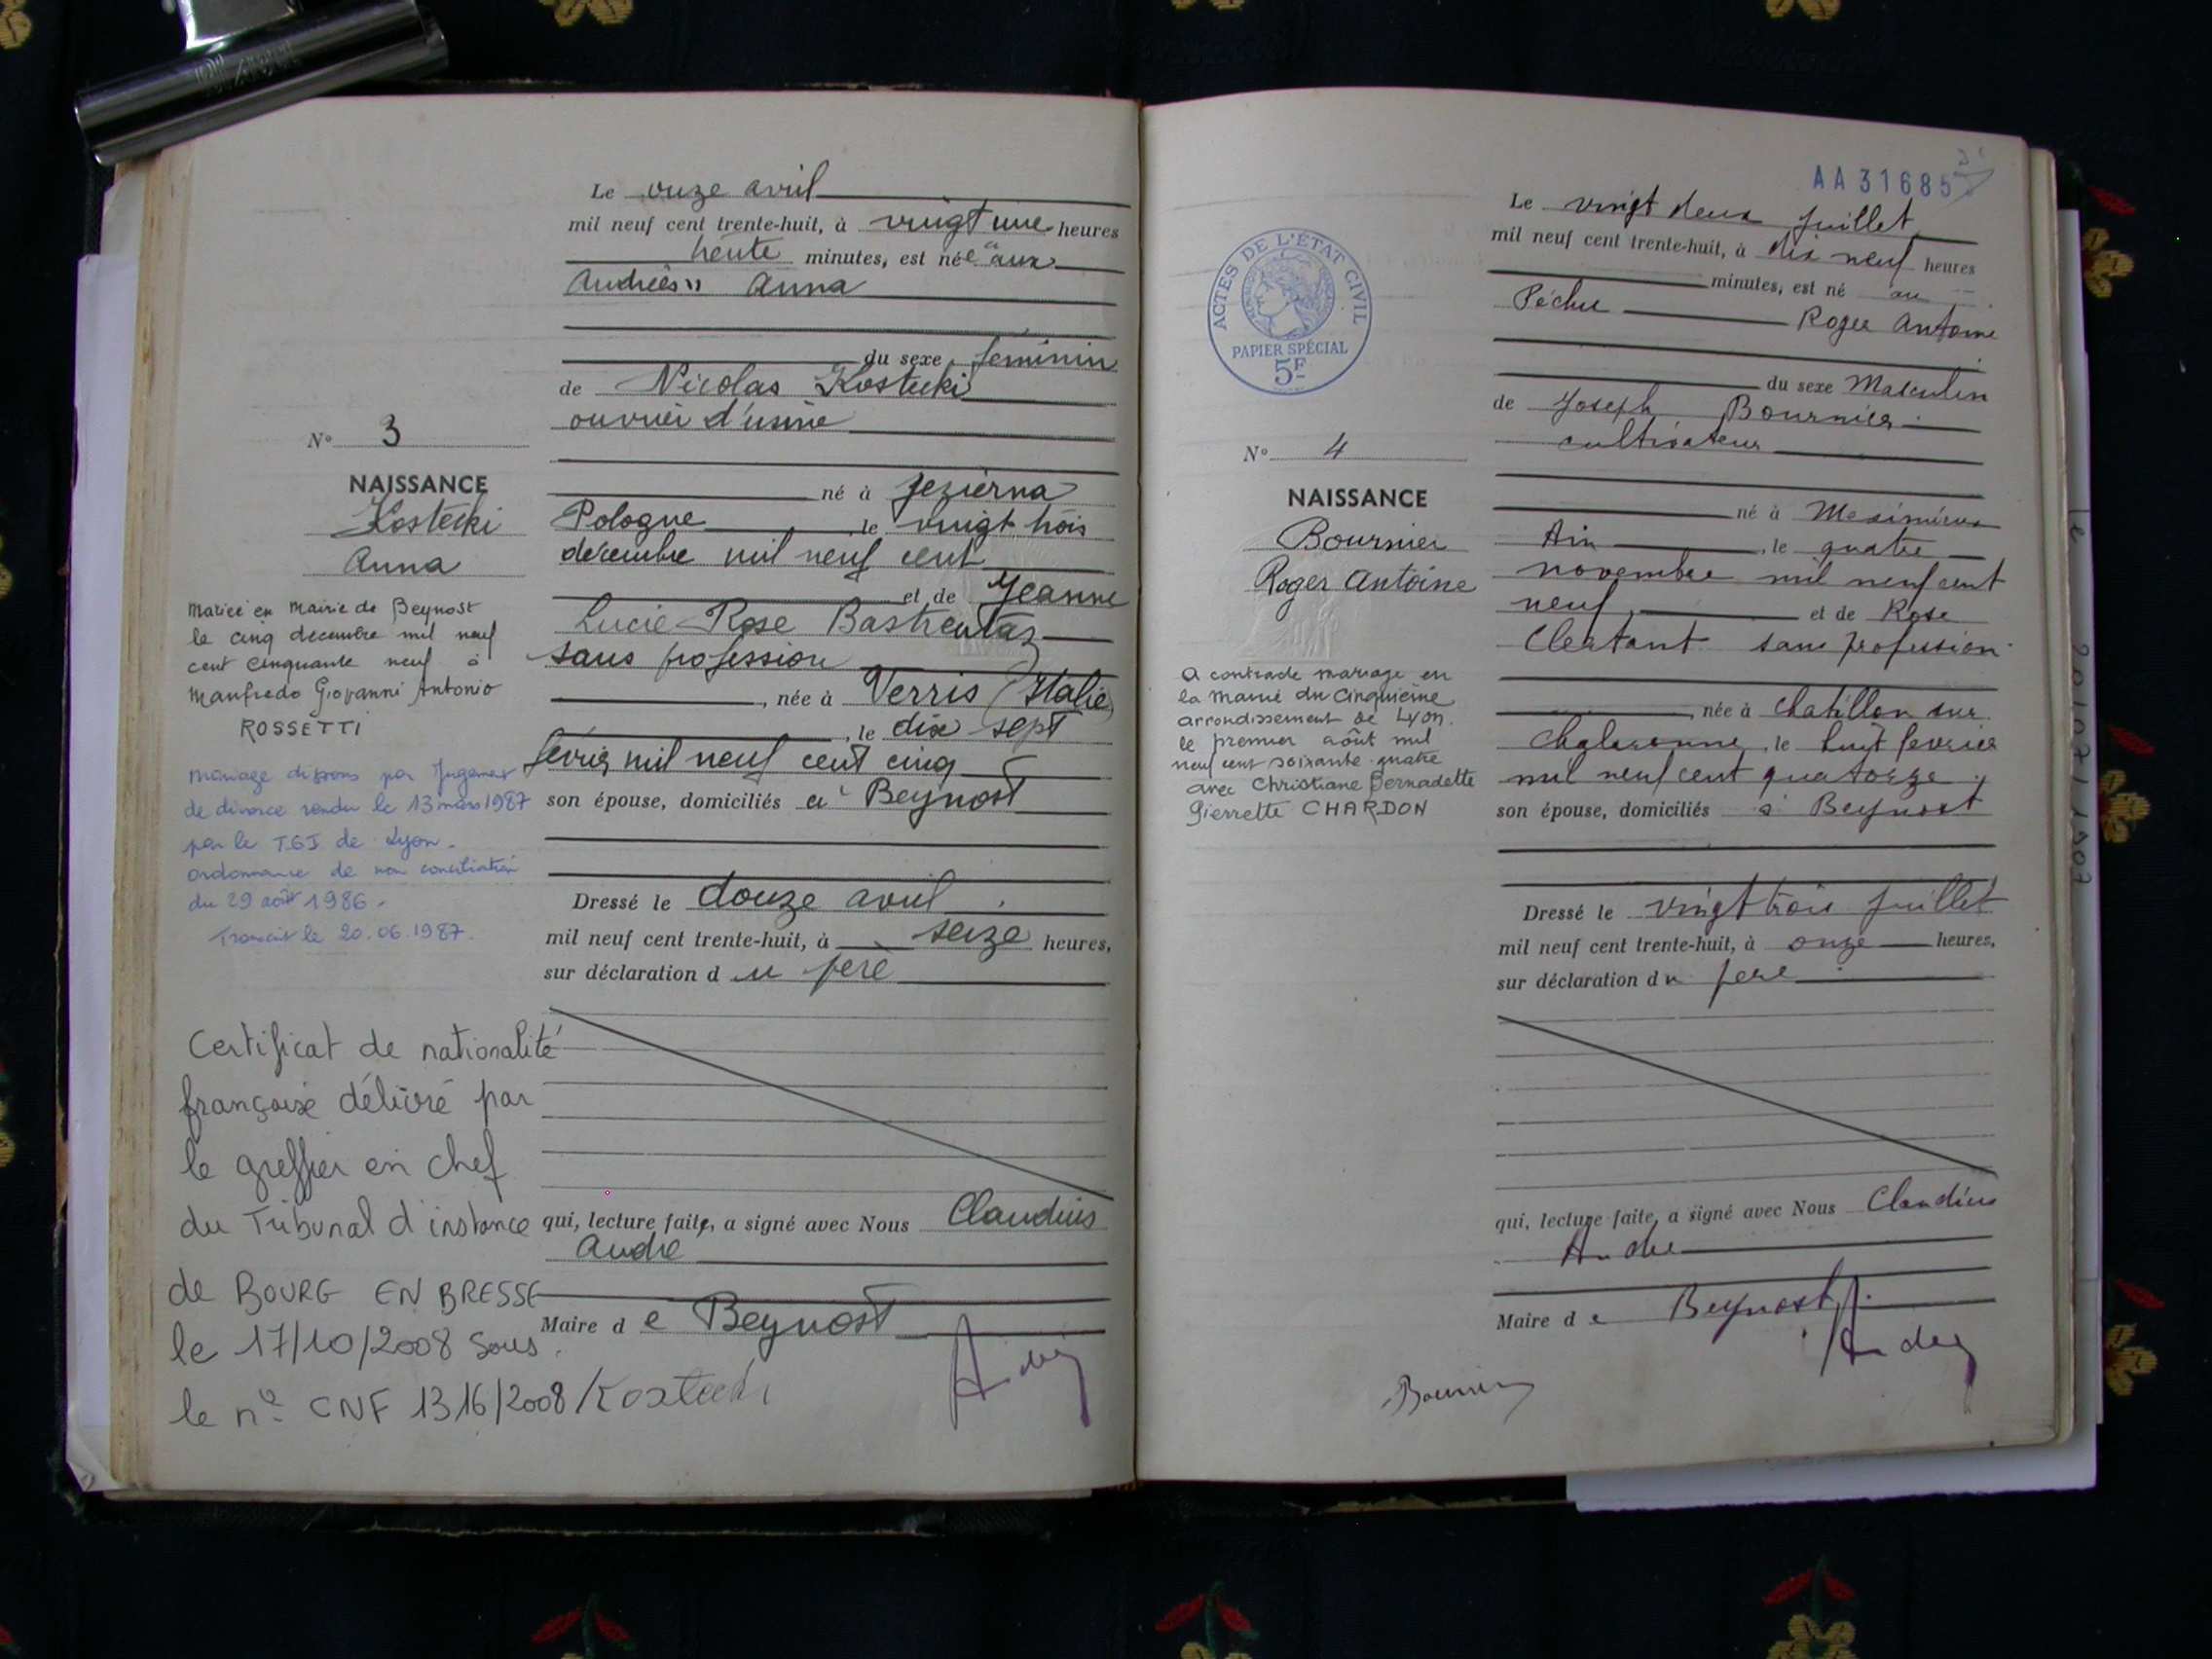 Le onze avril
mil neuf cent trente-huit, à vingt une heures
trente minutes, est née aux
Andrées" Anna
du sexe féminin
de Nicolas Kostecki
ouvrier d'usine
N° 3
NAISSANCE
Kostecki
Anna
né à Jezierna
Pologne, le vingt trois
décembre mil neuf cent
et de Jeanne
Lucie Rose Bastrentaz
sans profession
, née à Verris (Italie)
, le dix sept
février mil neuf cent cinq
son épouse, domiciliés à Beynost
Mariée en Mairie de Beynost
le cinq decembre mil neuf
cent cinquante neuf à
Manfredo Giovanni Antonio
ROSSETTI
Mariage dissous par Jugement
de divorce rendu le 13 mars 1987
par le TGI de Lyon.
Ordonnance de non conciliation
du 29 août 1986.
Transcrit le 20.06.1987.
Dressé le douze avril
mil neuf cent trente-huit, à seize heures,
sur déclaration du père
Certificat de nationalité
française délivré par
le greffier en chef
du Tribunal d'instance
de BOURG EN BRESSE
le 17/10/2008 sous
le n° CNF 1316/2008
qui, lecture faite, a signé avec Nous Claudius
André
Maire de Beynost
Kostecki
AA31685
Le vingt deux Juillet
mil neuf cent trente-huit, à dix neuf heures
minutes, est né au
Péchu Roger Antoine
du sexe Masculin
de Joseph Bournier
cultivateur
ACTES DE L'ÉTAT CIVIL
PAPIER SPÉCIAL
5F
N° 4
NAISSANCE
Bournier
Roger Antoine
né à Meximieux
Ain, le quatre
novembre mil neuf cent
neuf, et de Rose
Clertant sans profession
, née à Chatillon sur
Chalaronne, le huit fevrier
mil neuf cent quatorze
son épouse, domiciliés à Beynost
A contracté mariage en
la Mairie du Cinquième
arrondissement de Lyon.
le premier août mil
neuf cent soixante quatre
avec Christiane Bernadette
Pierrette CHARDON
Dressé le vingt trois Juillet
mil neuf cent trente-huit, à onze heures,
sur déclaration du père
qui, lecture faite, a signé avec Nous Claudius
André
Maire de Beynost
André
Bournier